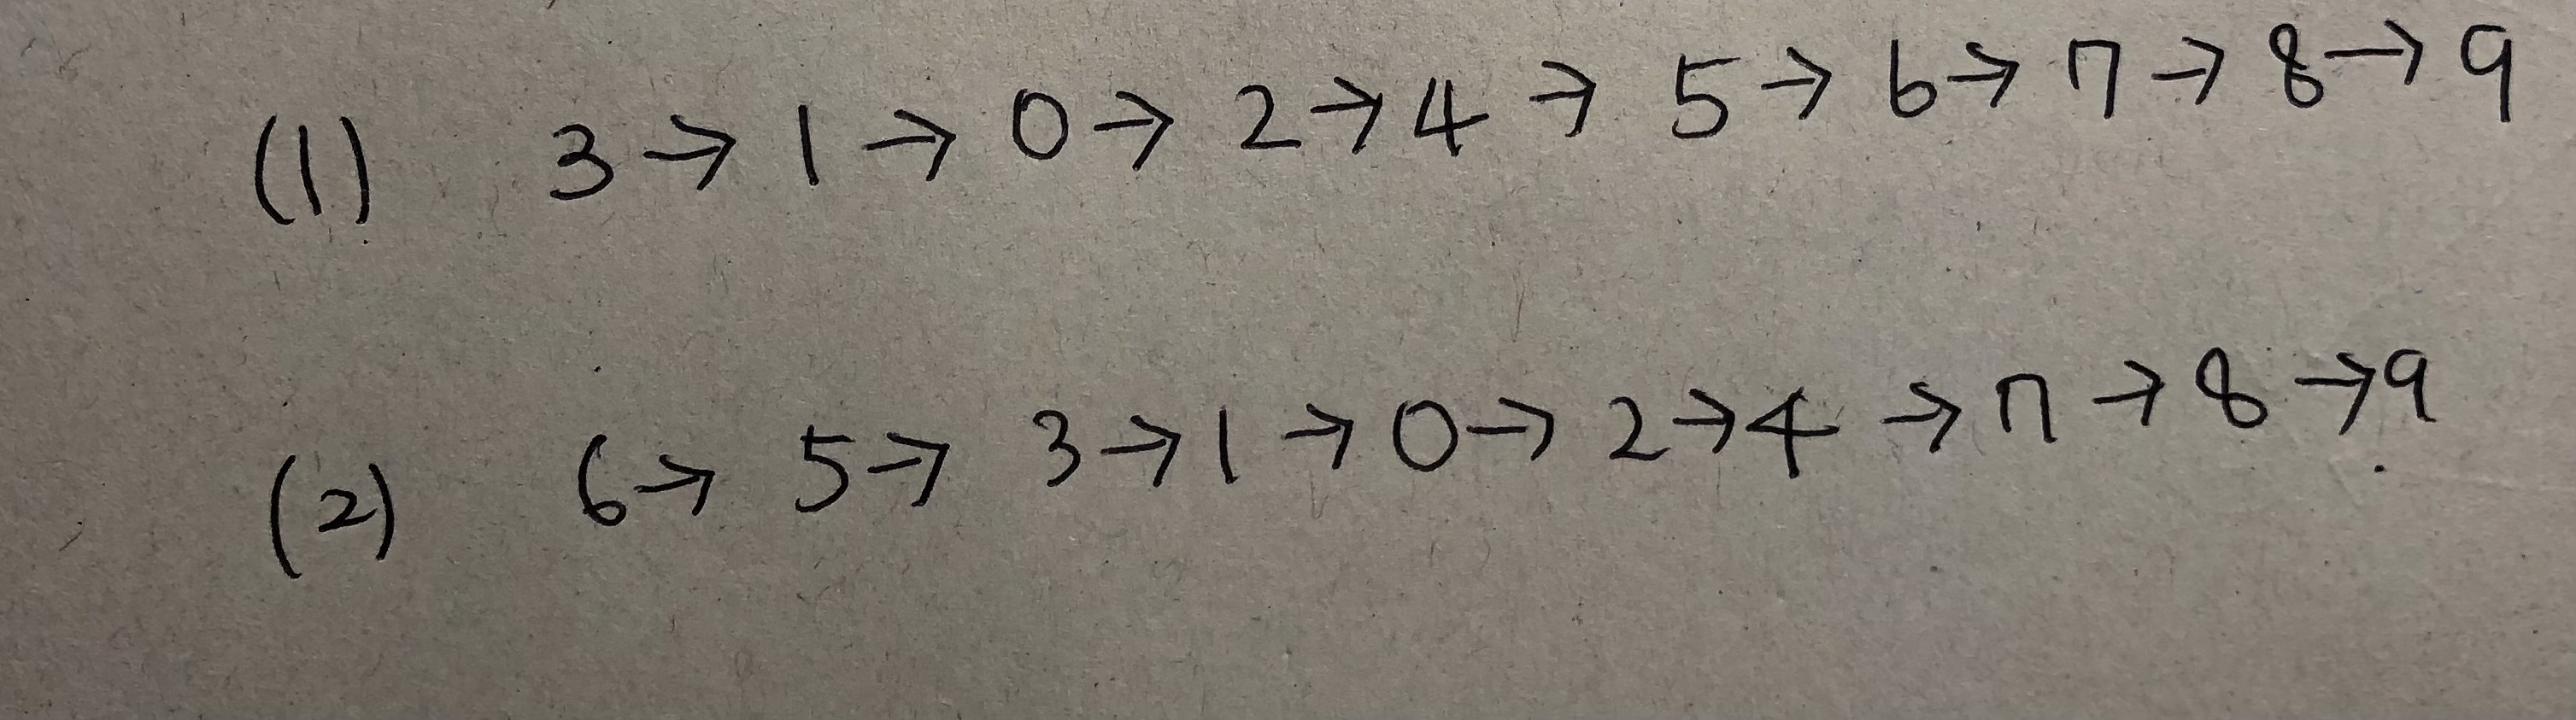 (1) 3 → 1 → 0 → 2 → 4 → 5 → 6 → 7 → 8 → 9
(2) 6 → 5 → 3 → 1 → 0 → 2 → 4 → 7 → 8 → 9